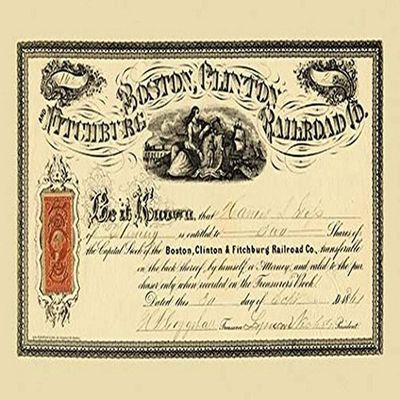 BOSTON, CLINTON
AND FITCHBURG RAILROAD CO.
Be it Known, that
of is entitled to Two Shares of
the Capital Stock of the Boston, Clinton & Fitchburg Railroad Co., transferable
on the back thereof, by himself or Attorney, and valid to the pur
chaser only when recorded on the Treasurers Book.
Dated this 20 day of 186
Treasurer President